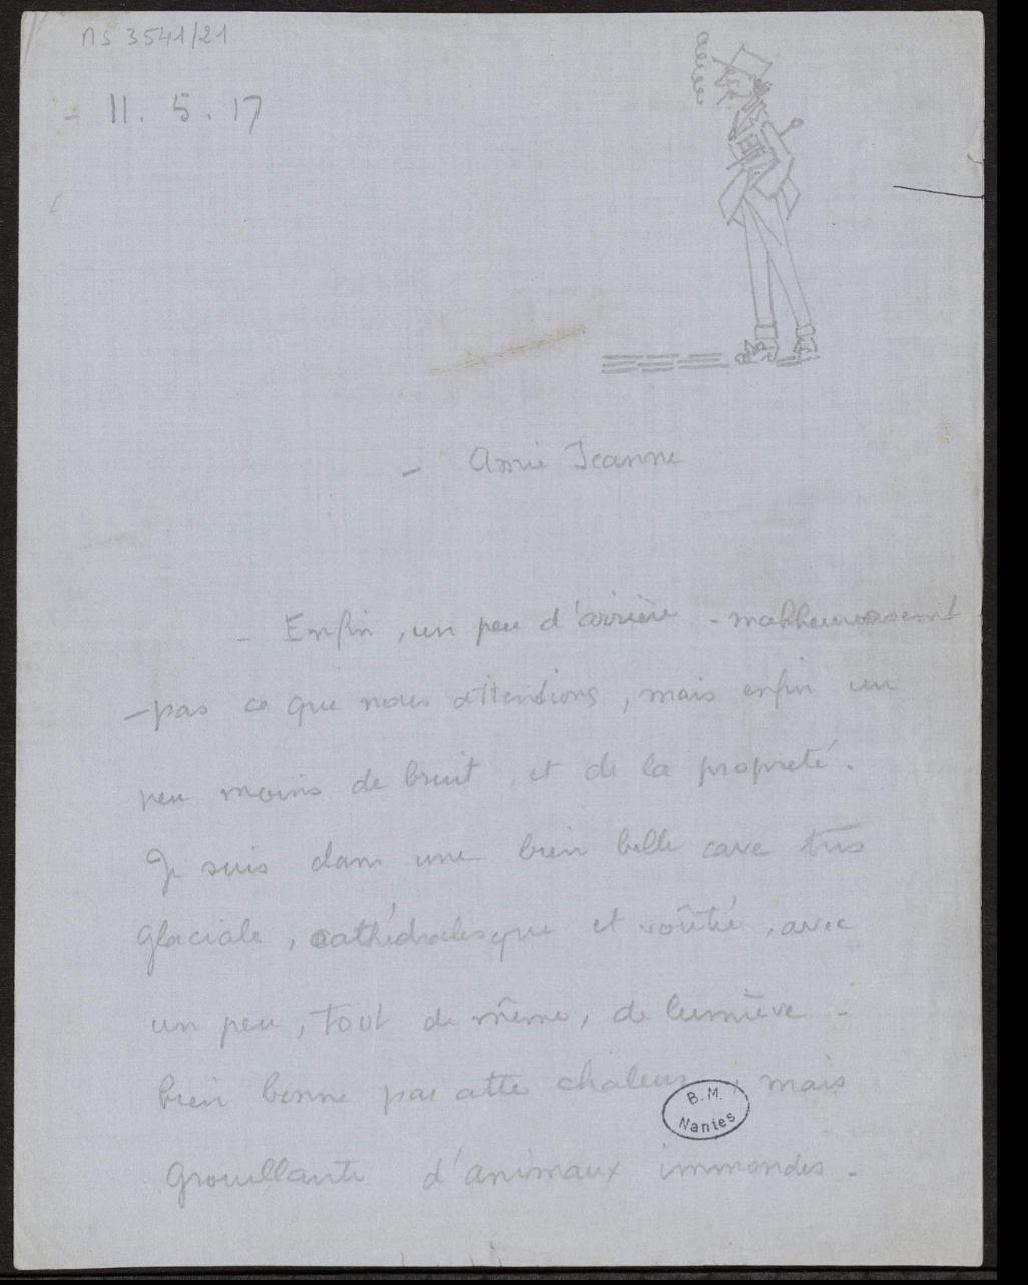 ms 3541/21
- 11. 5. 17
- Amie Jeanne
- Enfin, un peu d'arrière - malheureusement
- pas ce que nous attendions, mais enfin un
peu moins de bruit, et de la propreté.
Je suis dans une bien belle cave très
glaciale, cathédralesque et voûtée, avec
un peu, tout de même, de lumière -
bien bonne par cette chaleur, mais
B.M.
Nantes
grouillante d'animaux immondes -